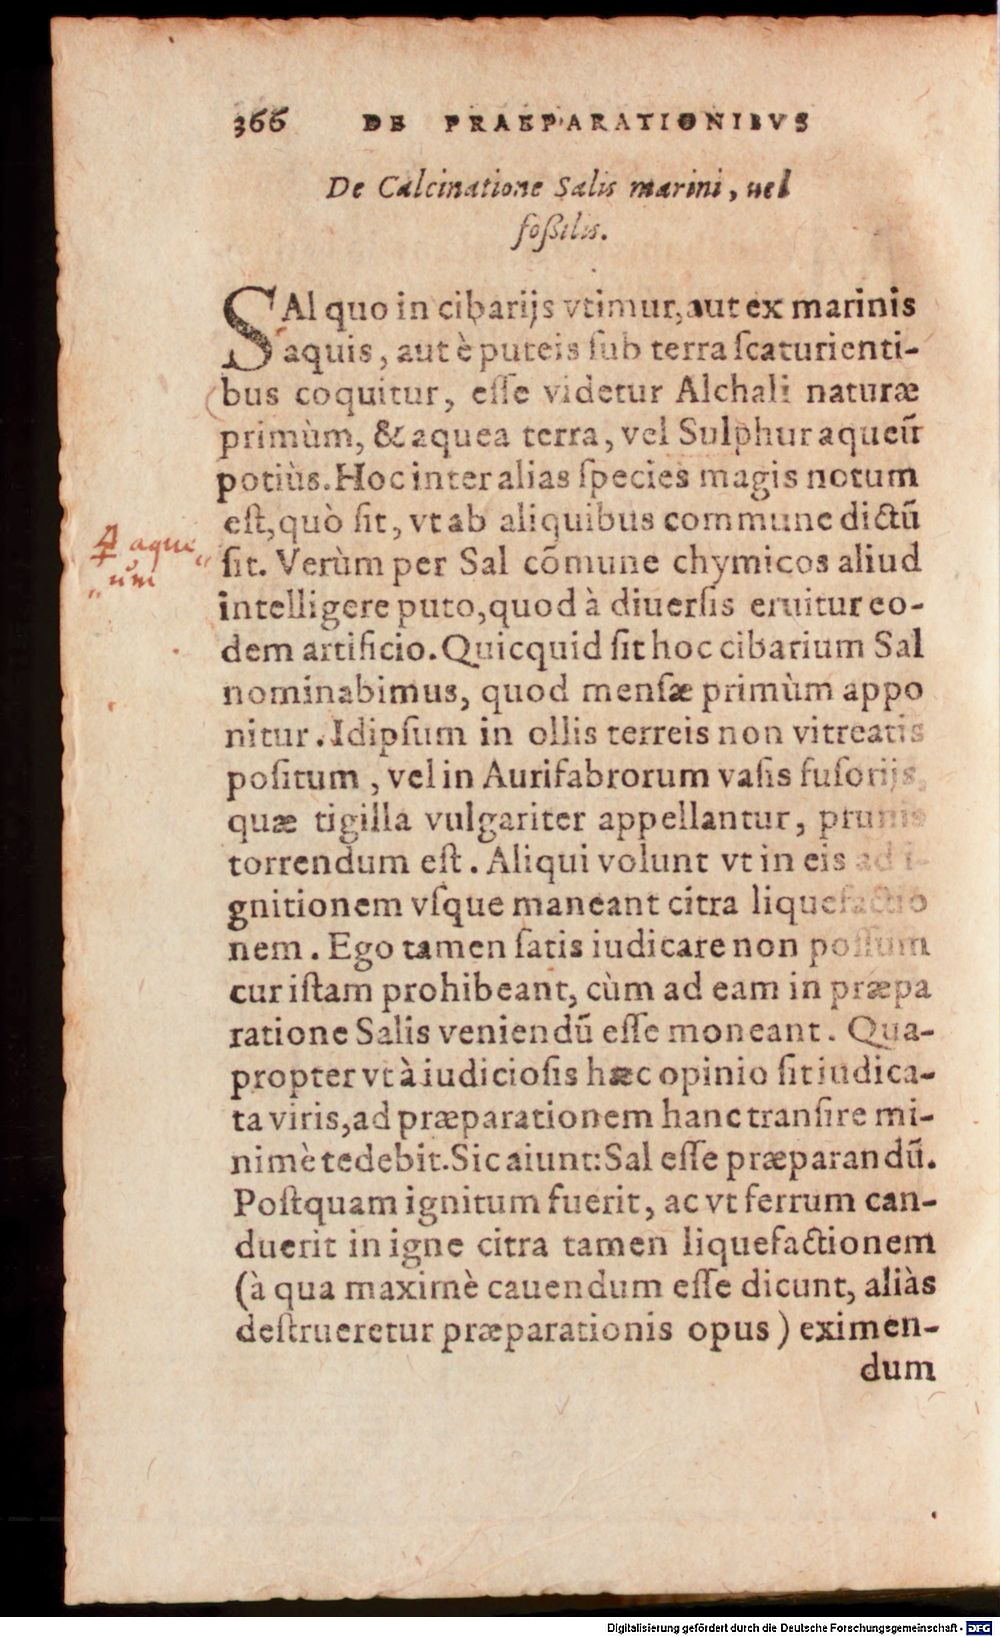 366 DE PRAEPARATIONIBVS
De Calcinatione Salis marini, uel
foßilis.
SAl quo in cibarijs vtimur, aut ex marinis
aquis, aut è puteis ſub terra ſcaturienti-
bus coquitur, eſſe videtur Alchali naturæ
primùm, & aquea terra, vel Sulphur aqueũ
potiùs. Hoc inter alias ſpecies magis notum
eſt, quò ſit, vt ab aliquibus commune dictũ
ſit. Verùm per Sal cõmune chymicos aliud
intelligere puto, quod à diuerſis eruitur eo-
dem artificio. Quicquid ſit hoc cibarium Sal
nominabimus, quod menſæ primùm appo
nitur. Idipſum in ollis terreis non vitreatis
poſitum, vel in Aurifabrorum vaſis fuſorijs,
quæ tigilla vulgariter appellantur, prunis
torrendum eſt. Aliqui volunt vt in eis ad i-
gnitionem vſque maneant citra liquefactio
nem. Ego tamen ſatis iudicare non poſſum
cur iſtam prohibeant, cùm ad eam in præpa
ratione Salis veniendũ eſſe moneant. Qua-
propter vt à iudicioſis hæc opinio ſit iudica-
ta viris, ad præparationem hanc tranſire mi-
nimè tedebit. Sic aiunt: Sal eſſe præparandũ.
Poſtquam ignitum fuerit, ac vt ferrum can-
duerit in igne citra tamen liquefactionem
(à qua maximè cauendum eſſe dicunt, aliàs
deſtrueretur præparationis opus) eximen-
dum
🜍 aque„
„um
Digitalisierung gefördert durch die Deutsche Forschungsgemeinschaft - DFG